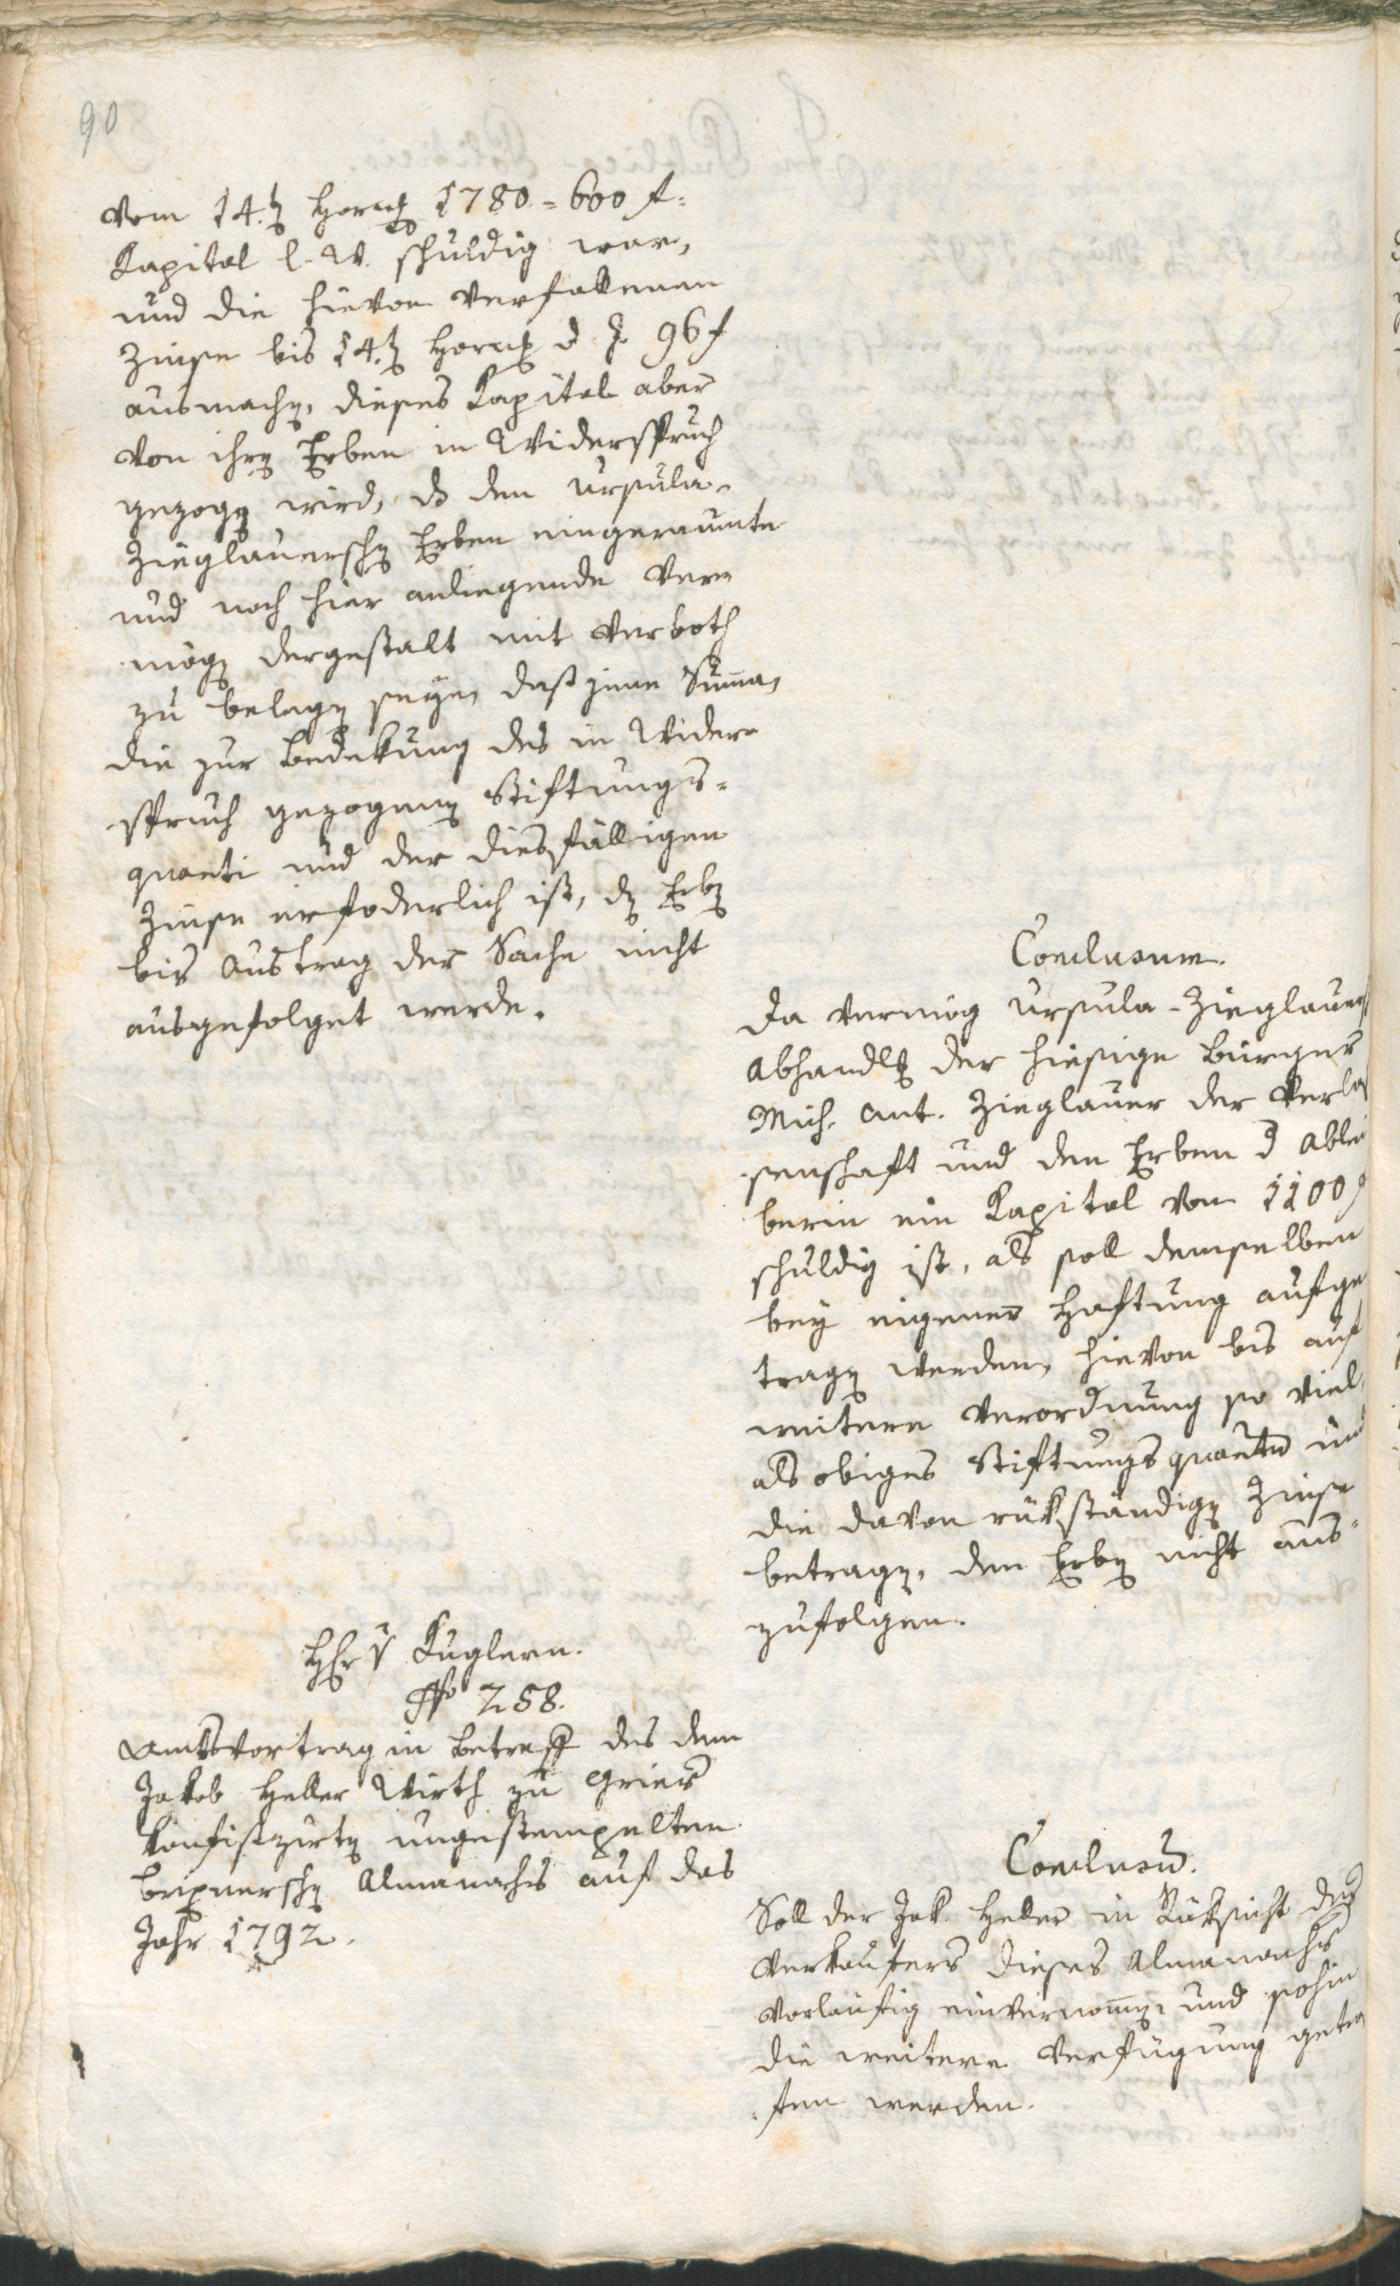 90
vom 14.ten Hornung 1780 = 600 f:
Kapital l. W. schuldig war,
und die hievon verfallenen
Zinse bis 14.ten Hornung d. J. 96 f
ausmachen, dieses Kapital aber
von ihren Erben in Widerspruch
gezogen wird, das den Ursula-
Zieglauerschen Erben eingeraumte
und noch hier anliegende Ver-
mögen dergestalt mit Verboth
zu belegen seye, daß jene Summa,
die zur Bedekung des in Wider-
spruch gezogenen Stiftungs-
quanti und der diesfälligen
Zinse erfoderlich ist, den Erben
bis Austrag der Sache nicht
ausgefolget werde.
Conclusum.
Da vermög Ursula-Zieglauer
Abhandlung der hiesige Bürger
Mich. Ant. Zieglauer der Verla
senschaft und den Erben d Ablei
berin ein Kapital von 1100 f
schuldig ist, als soll demselben
bey eigener Haftung aufge
tragen werden, hievon bis auf
weitere Verordnung so viel,
als obiges Stiftungsquantum und
die davon rükständigen Zinse
betragen, den Erben nicht aus-
zufolgen.
Hr v Kuglern.
No 258.
Amtsvortrag in Betreff des dem
Jakob Heller Wirth zu Gries
konfiszirten ungestempelten
Brixnerschen Almanachs auf das
Jahr 1792.
Conclusum.
Soll der Jak. Heller in Rüksicht des
Verkaufers dieses Almanachs
vorläufig einvernommen, und sohin
die weitere Verfügung getro
fen werden.